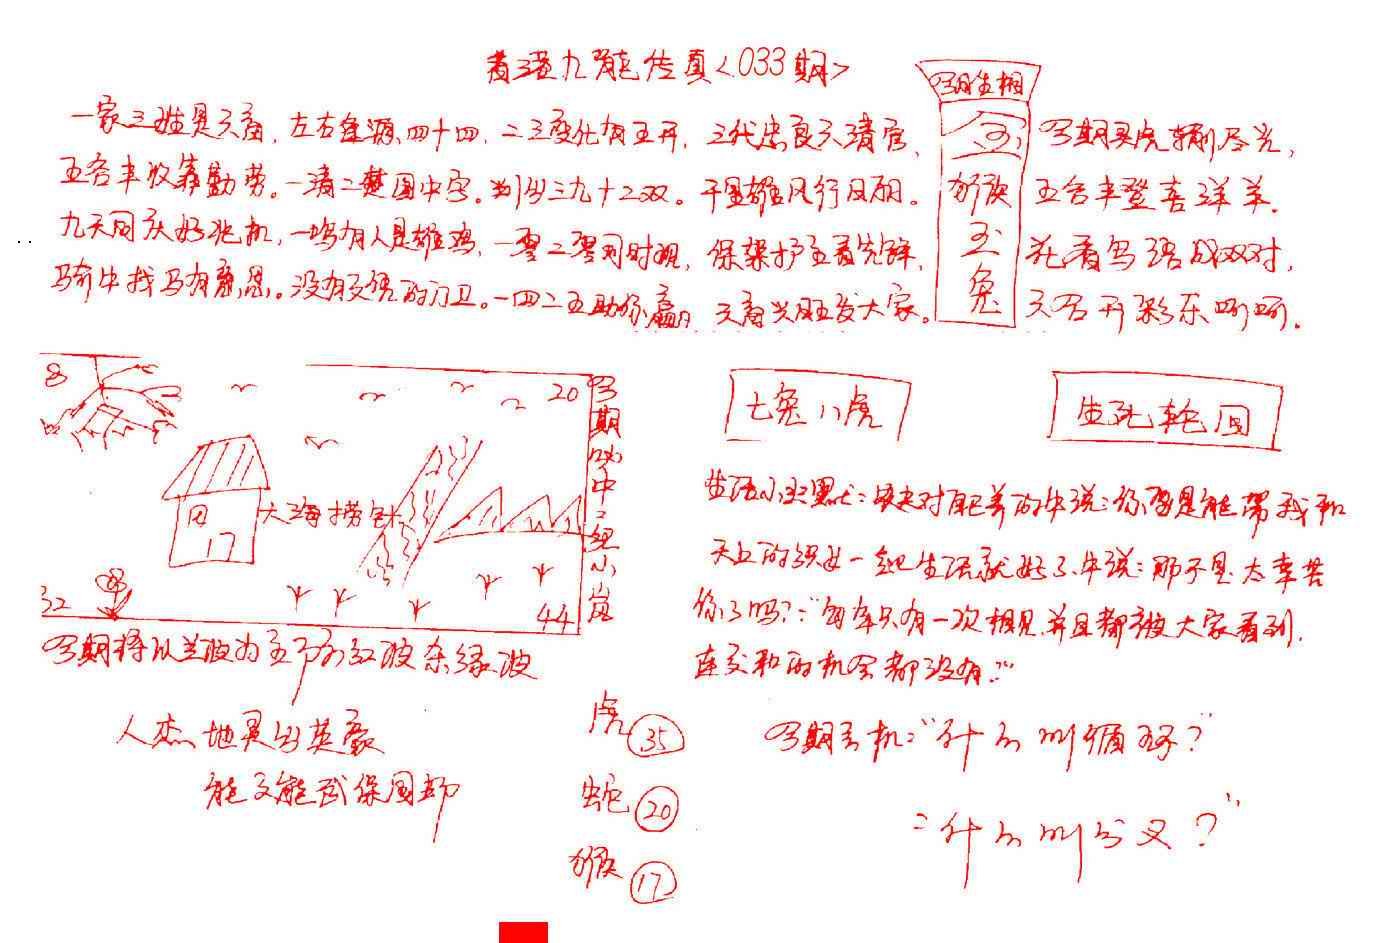 香港九龍传真<033期>
一家三姓是天商，左右鱼源四十四，二三变化有五开，三代忠良天清官，
五谷丰收靠勤劳。一清二楚国中字。判出三九十二双。干显雄风行风雨。
九天同庆好兆机，一鸣有人是雄鸡，一零二零同时现，保架护主看先辞，
骑牛找马有意思。没有交绩的门卫。一四二五助你赢 天商兴旺发大家。
另期生相
金
猴
玉
兔
另期买虎输尽光，
五谷丰登喜洋羊，
花香鸟语成双对，
天召开彩乐呵呵。
8
20
田
17
大海捞针
32
44
另期必中二组小岚
另期将以兰波为主另有红波杂绿波
人杰地灵出英豪
能文能武保国邦
虎 35
蛇 20
猴 17
七兔八虎
生死轮回
生活小幽默：对自己养的牛说：你要是能带我和
天上的织女一起生活就好了、牛说：那不是太幸苦
你了吗？：“每年只有一次相见并且都被大家看到，
连交和的机会都没有”
另期玄机：“什么叫循环？”
：什么叫分叉？”